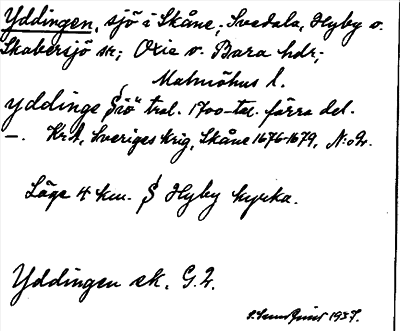 Yddingen, sjö i Skåne; Svedala, Hyby o.
Skabersjö sk; Oxie o. Bara hdr;
Malmöhus l.
Yddinge Siö" trol. 1700-tal. förra del.
–. KrA, Sveriges krig, Skåne 1676-1679, N:o 2.
Läge 4 km. S Hyby kyrka.
Yddingen ek. G.2.
1937.